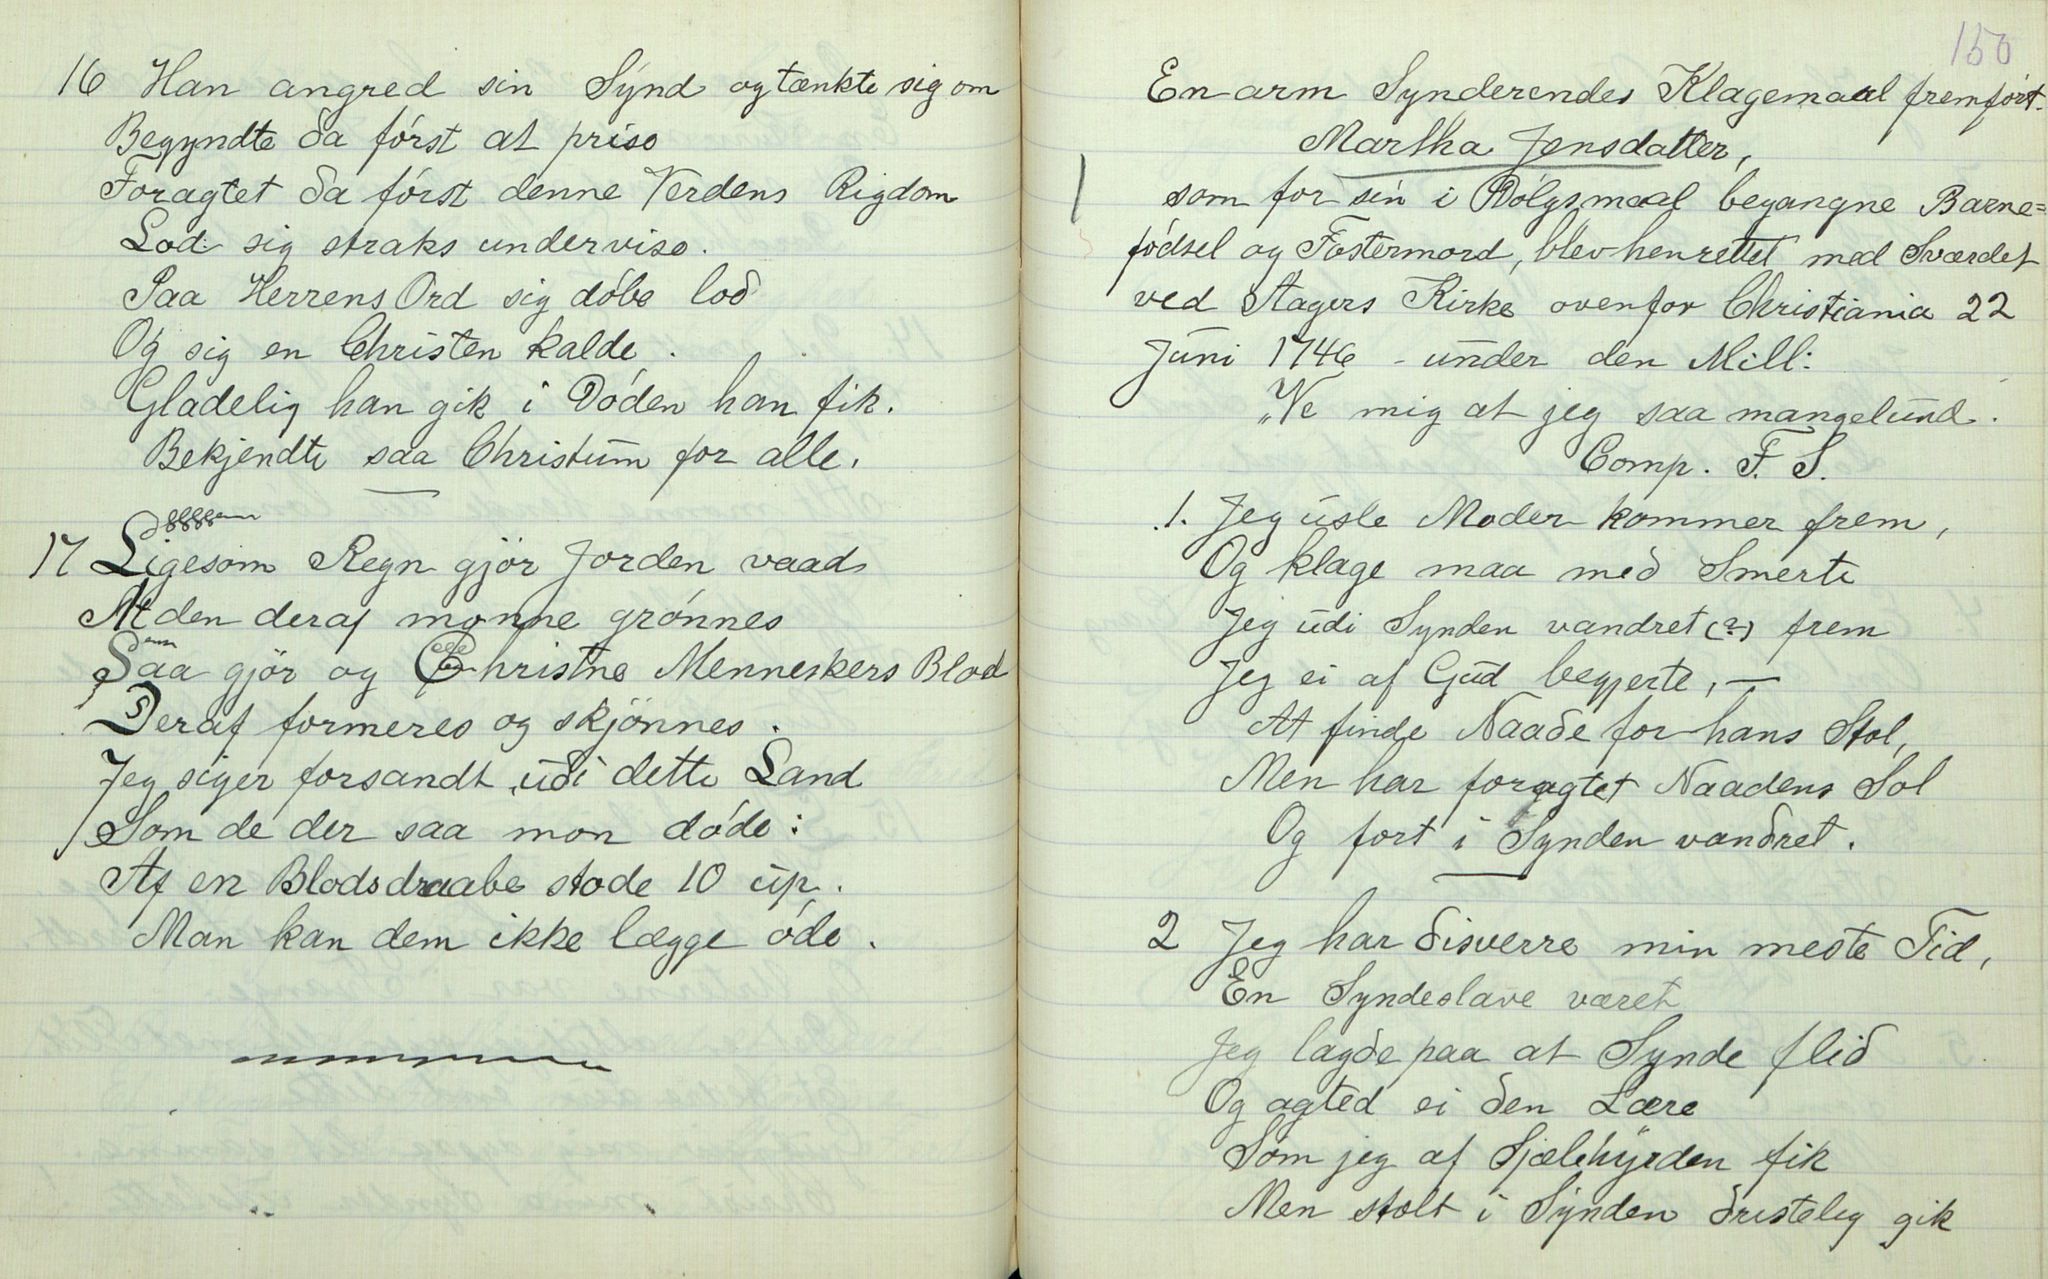 16 Han angred sin Synd og tænkte sig om
Begyndte da först at prise
Foragtet da först denne Verdens Rigdom
Lod sig straks undervise.
Paa Herrens Ord sig döbe lod
Og sig en Christen kalde.
Gladelig han gik i Döden han fik.
Bekjendte saa Christum for alle.
17 Ligesom Regn gjör Jorden vaad
At den deraf monne grönnes
Saa gjör og Christne Menneskers Blod
Deraf formeres og skjönnes.
Jeg siger forsandt, udi dette Land
Som de der saa mon döde:
Af en Blodsdraabe stode 10 up.
Man kan dem ikke lægge öde.
150
En arm Synderendes Klagemaal fremfört
Martha Jensdatter,
1
som for sin i Dölgsmaal begangne Barne=
födsel og Fostermord, blev henrettet med Sværdet
ved Agers Kirke ovenfor Christiania 22
Juni 1746 - under den Mill:
"Ve mig at jeg saa mangelund.
Comp. F. S.
1. Jeg usle Moder kommer frem,
Og klage maa med Smerte
Jeg udi Synden vandret (?) frem
Jeg ei af Gud begjerte, —
At finde Naade for hans Stol,
Men har foragtet Naadens Sol
Og fort i Synden vandret.
2 Jeg har disverre min meste Tid,
En Syndeslave været
Jeg lagde paa at Synde flid
Og agted ei den Lære
Som jeg af Sjælehyrden fik
Men stolt i Synden dristelig gik